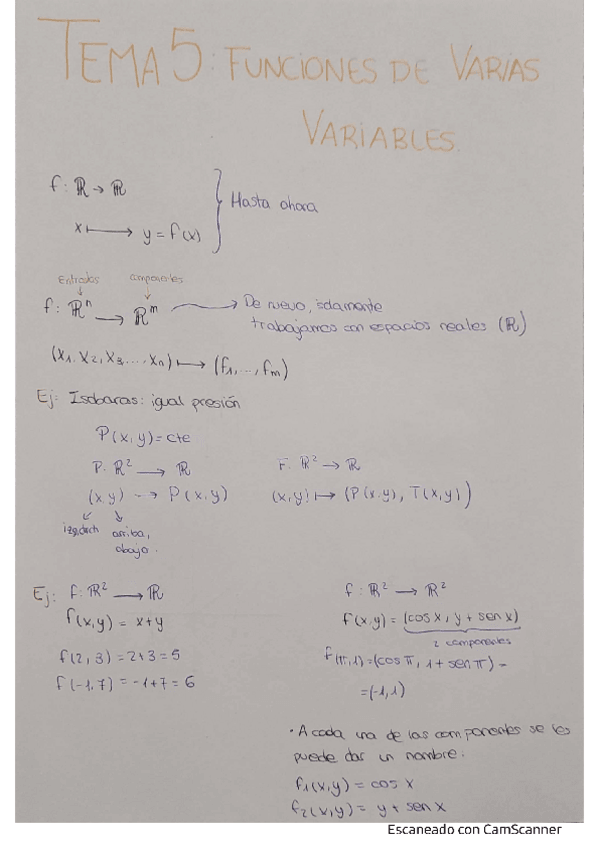 TEMA 5: FUNCIONES DE VARIAS
VARIABLES.
f: ℝ → ℝ
x ⟼ y = f(x)
Hasta ahora
Entradas componentes
f: ℝⁿ → ℝᵐ
De nuevo, solamente
trabajamos con espacios reales (ℝ)
(x₁, x₂, x₃, ..., xₙ) ⟼ (f₁, ..., fₘ)
Ej: Isobaras: igual presión
P(x,y) = cte
P: ℝ² → ℝ
(x,y) → P(x,y)
izq, dch arriba,
abajo.
F: ℝ² → ℝ
(x,y) ⟼ (P(x,y), T(x,y))
Ej: f: ℝ² → ℝ
f(x,y) = x+y
f(2,3) = 2+3 = 5
f(-1,7) = -1+7 = 6
f: ℝ² → ℝ²
f(x,y) = (cos x, y + sen x)
2 componentes
f(π,1) = (cos π, 1 + sen π) =
= (-1,1)
· A cada una de las componentes se les
puede dar un nombre:
f₁(x,y) = cos x
f₂(x,y) = y + sen x
Escaneado con CamScanner